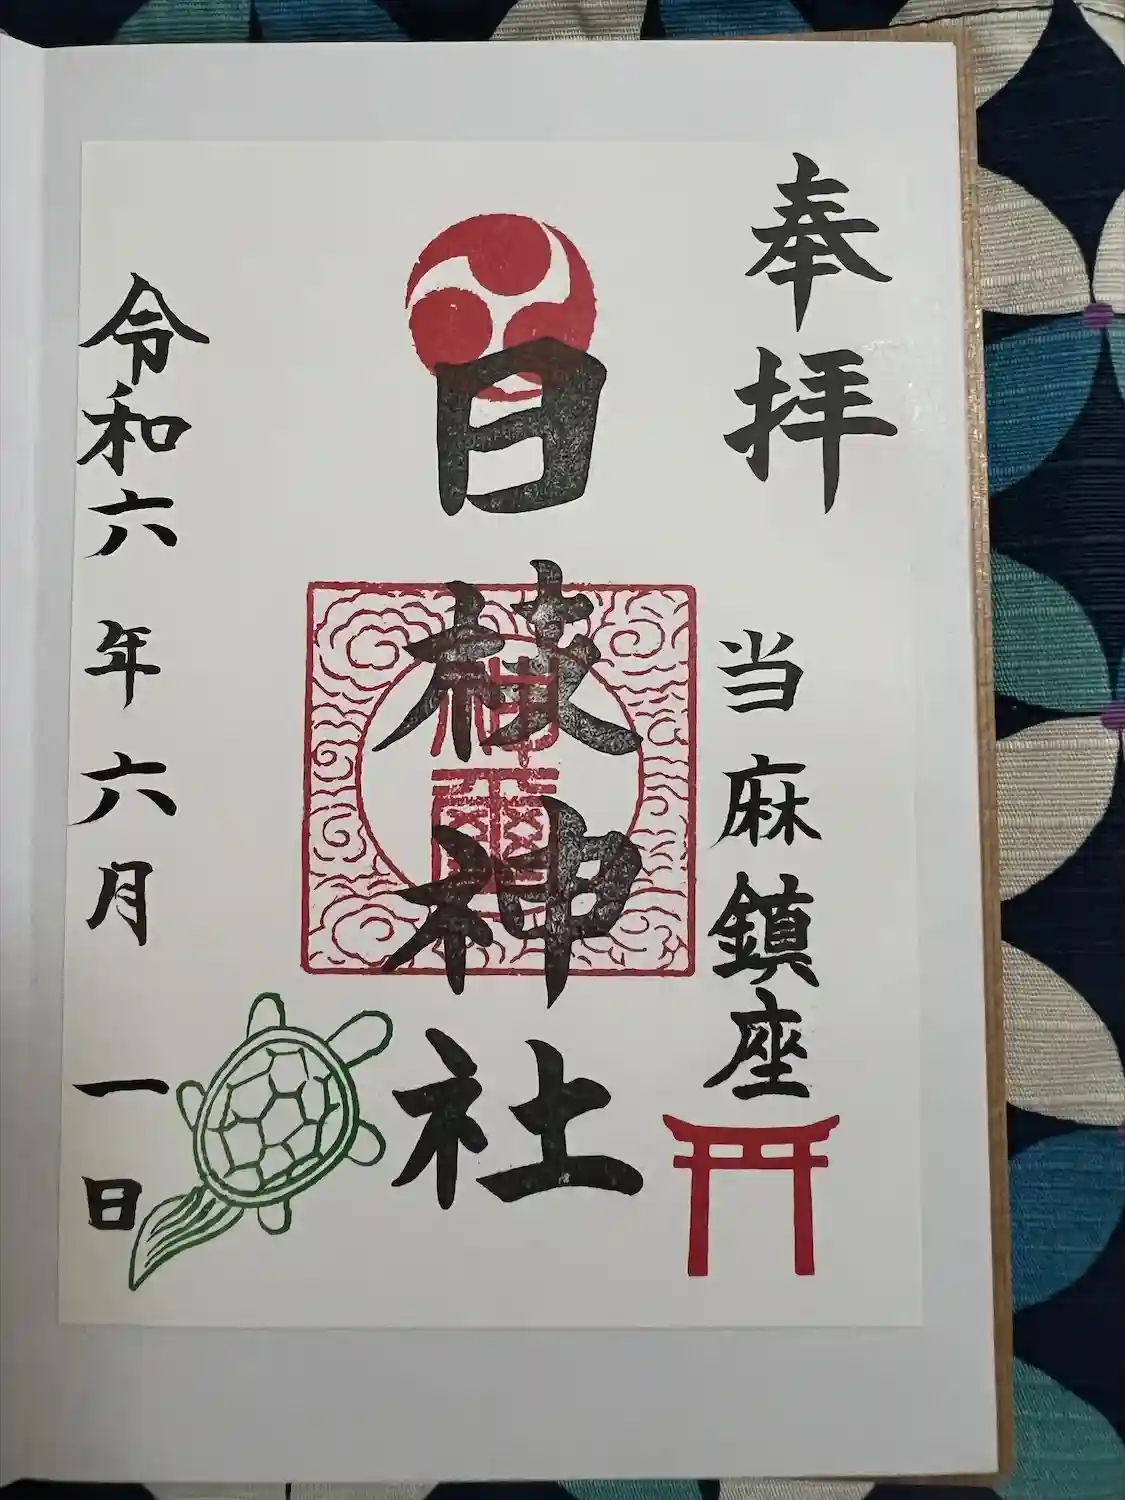 奉拝
当麻鎮座
日枝神社
神璽
令和六年六月一日